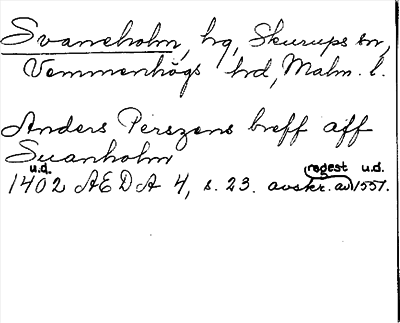 Svaneholm, hg, Skurups sn,
Vemmenhögs hd, Malm. l.
Anders Perszons breff aff
Suanholm
u.d. regest u.d.
1402 AEDA 4, s. 23. avskr. av 1551.